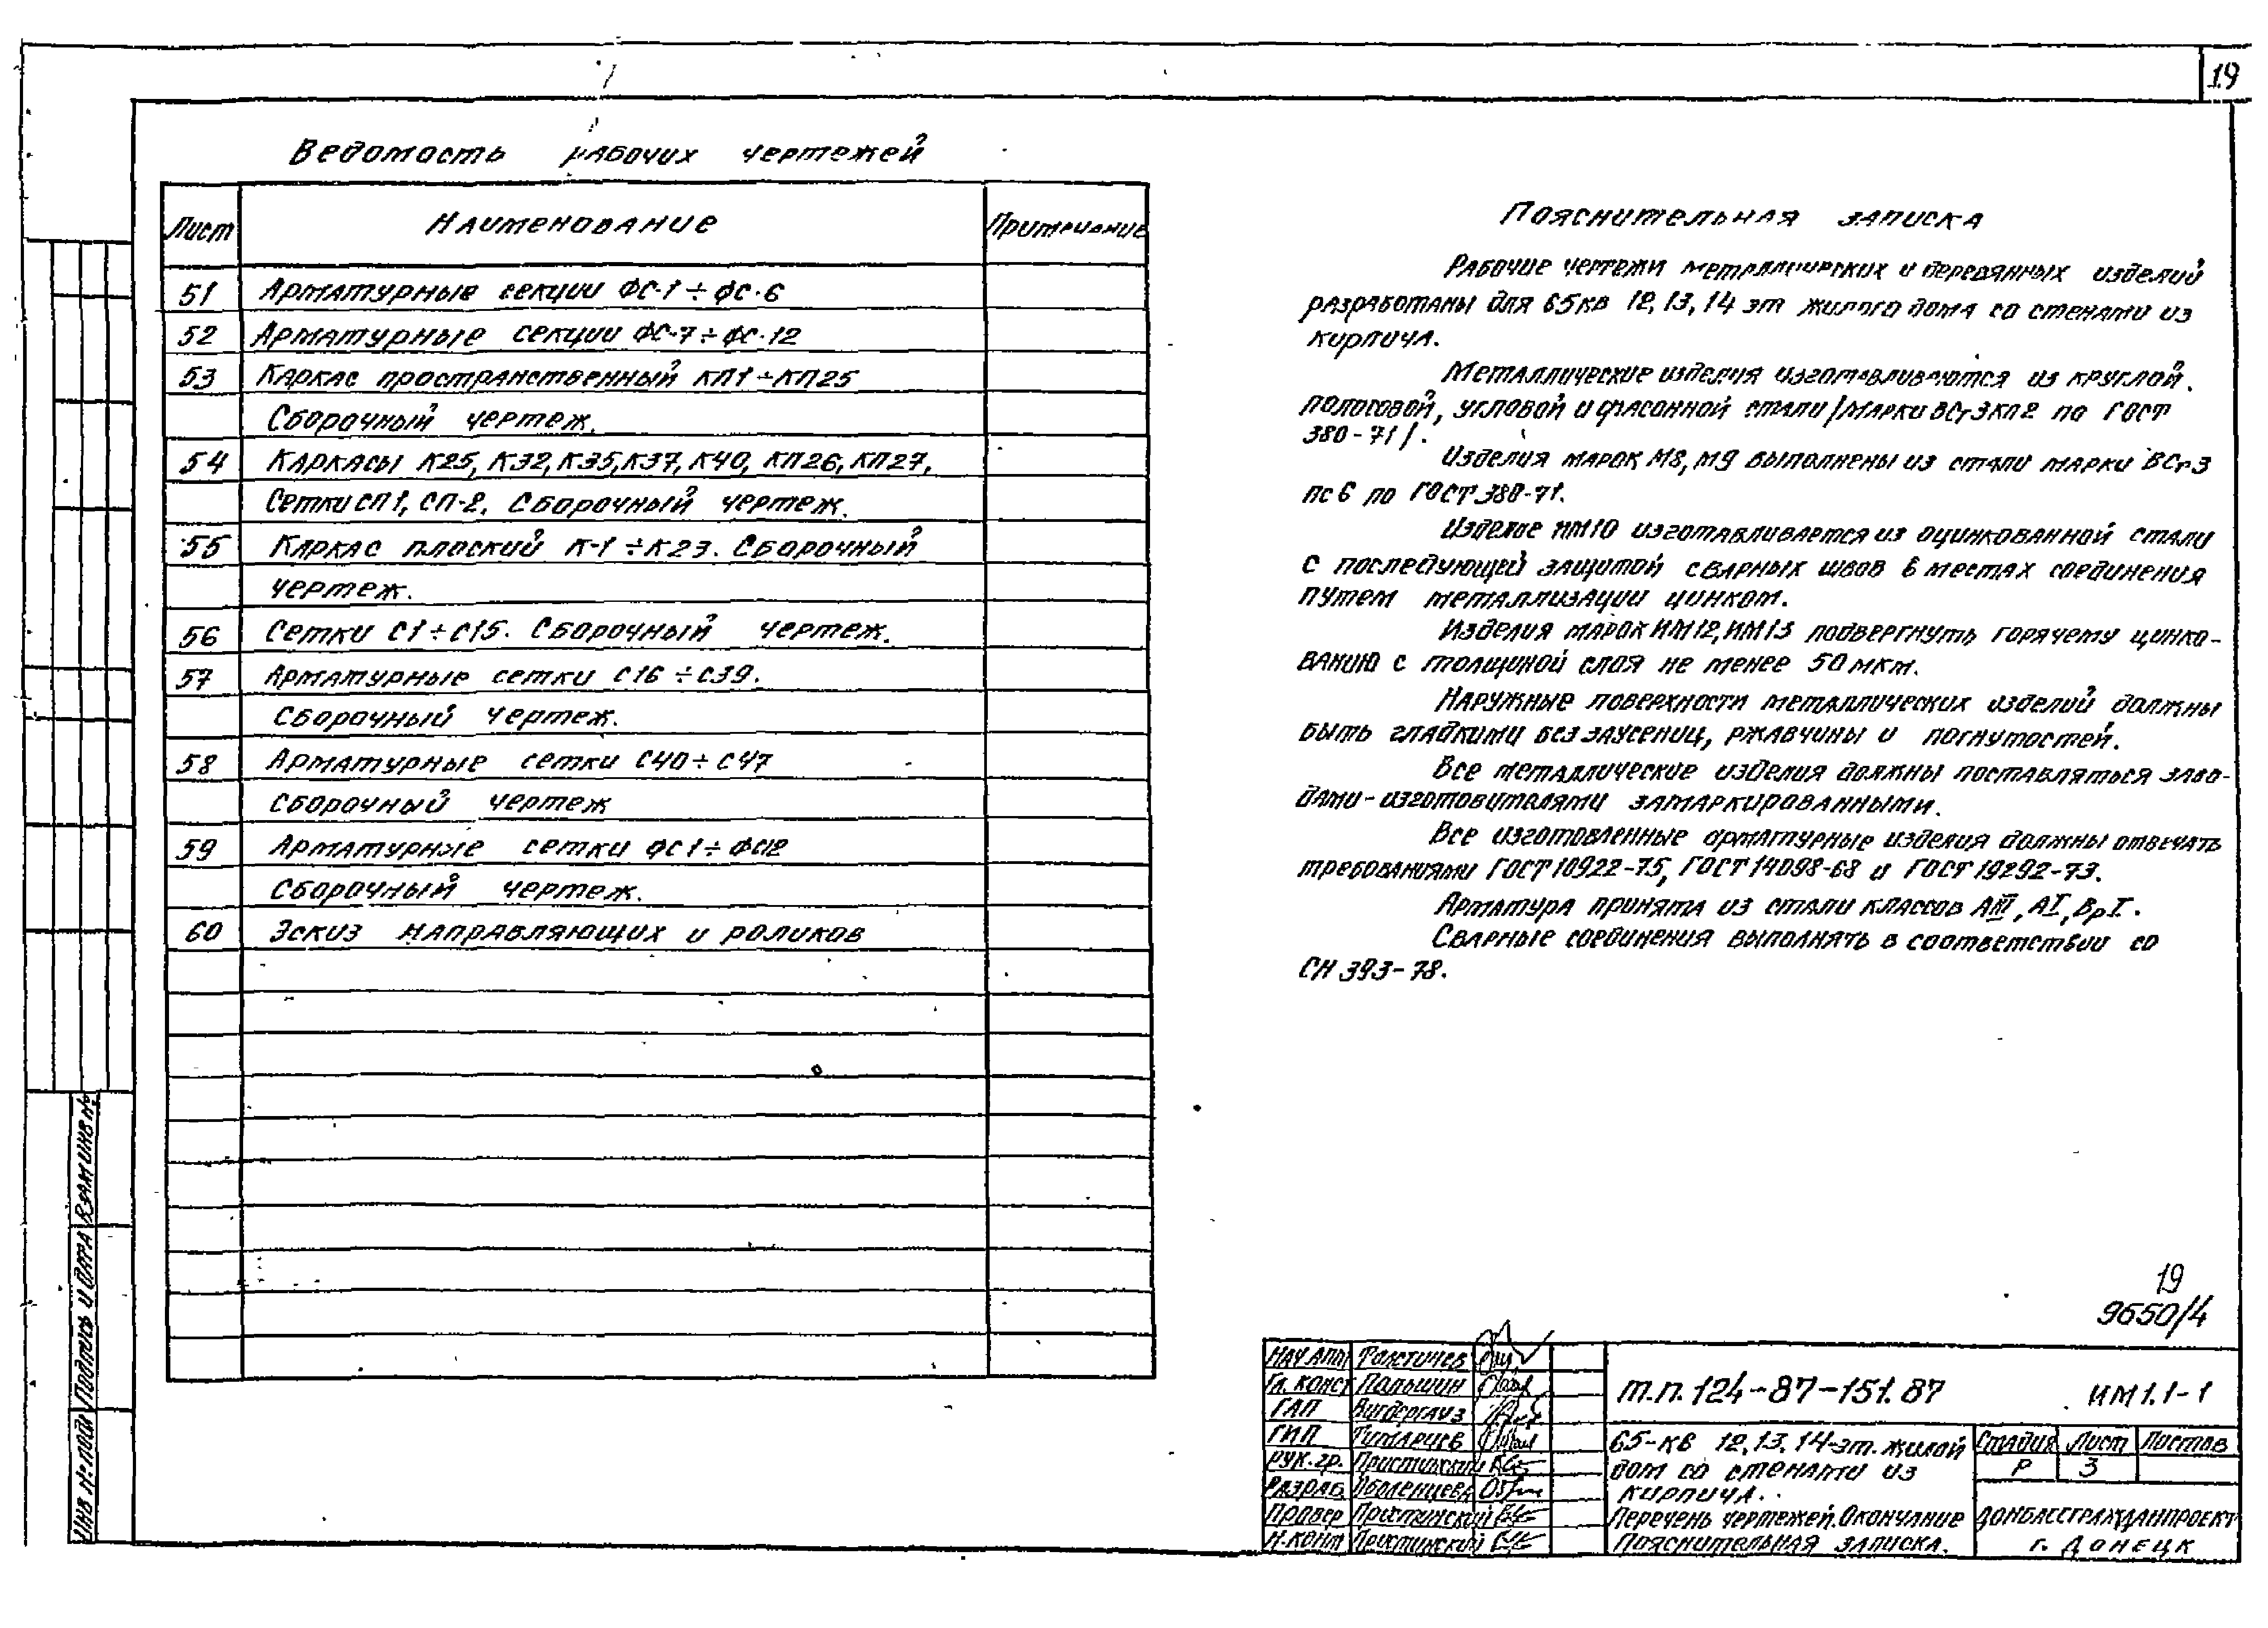 19
Ведомость рабочих чертежей
Лист Наименование Примечание
51 Арматурные секции ФС-1÷ФС-6
52 Арматурные секции ФС-7÷ФС-12
53 Каркас пространственный КП1÷КП25
Сборочный чертеж.
54 Каркасы К25, К32, К35, К37, К40, КП26, КП27,
Сетки СП1, СП-2. Сборочный чертеж.
55 Каркас плоский К-1÷К23. Сборочный
чертеж.
56 Сетки С1÷С15. Сборочный чертеж.
57 Арматурные сетки С16÷С39.
Сборочный чертеж.
58 Арматурные сетки С40÷С47
Сборочный чертеж
59 Арматурные сетки ФС1÷ФС12
Сборочный чертеж.
60 Эскиз направляющих и роликов
Пояснительная записка
Рабочие чертежи металлических и деревянных изделий
разработаны для 65кв 12,13,14 эт жилого дома со стенами из
кирпича.
Металлические изделия изготавливаются из круглой,
полосовой, угловой и фасонной стали /марки ВСт3кп2 по ГОСТ
380-71/.
Изделия марок М8, М9 выполнены из стали марки ВСт3
пс6 по ГОСТ 380-71.
Изделие ИМ10 изготавливается из оцинкованной стали
с последующей защитой сварных швов в местах соединения
путем металлизации цинком.
Изделия марок ИМ12, ИМ13 подвергнуть горячему цинко-
ванию с толщиной слоя не менее 50 мкм.
Наружные поверхности металлических изделий должны
быть гладкими без заусениц, ржавчины и погнутостей.
Все металлические изделия должны поставляться заво-
дами-изготовителями замаркированными.
Все изготовленные арматурные изделия должны отвечать
требованиями ГОСТ 10922-75, ГОСТ 14098-68 и ГОСТ 19292-73.
Арматура принята из стали классов АIII, АI, ВрI.
Сварные соединения выполнять в соответствии со
СН 393-78.
19
9650/4
Нач АПМ Толстичев
Гл. конст Пальшин
ГАП Вигдергауз
ГИП
Рук. гр. Пристинский
Разраб. Оболенцева
Провер Пристинский
Н.конт Пристинский
т.п. 124-87-151.87 ИМ1.1-1
65-кв 12,13,14-эт. жилой
дом со стенами из
кирпича.
Перечень чертежей. Окончание
Пояснительная записка.
Стадия Лист Листов
Р 3
ДОНБАССГРАЖДАНПРОЕКТ
г. Донецк
Взам инв №
Подпись и дата
Инв № подл